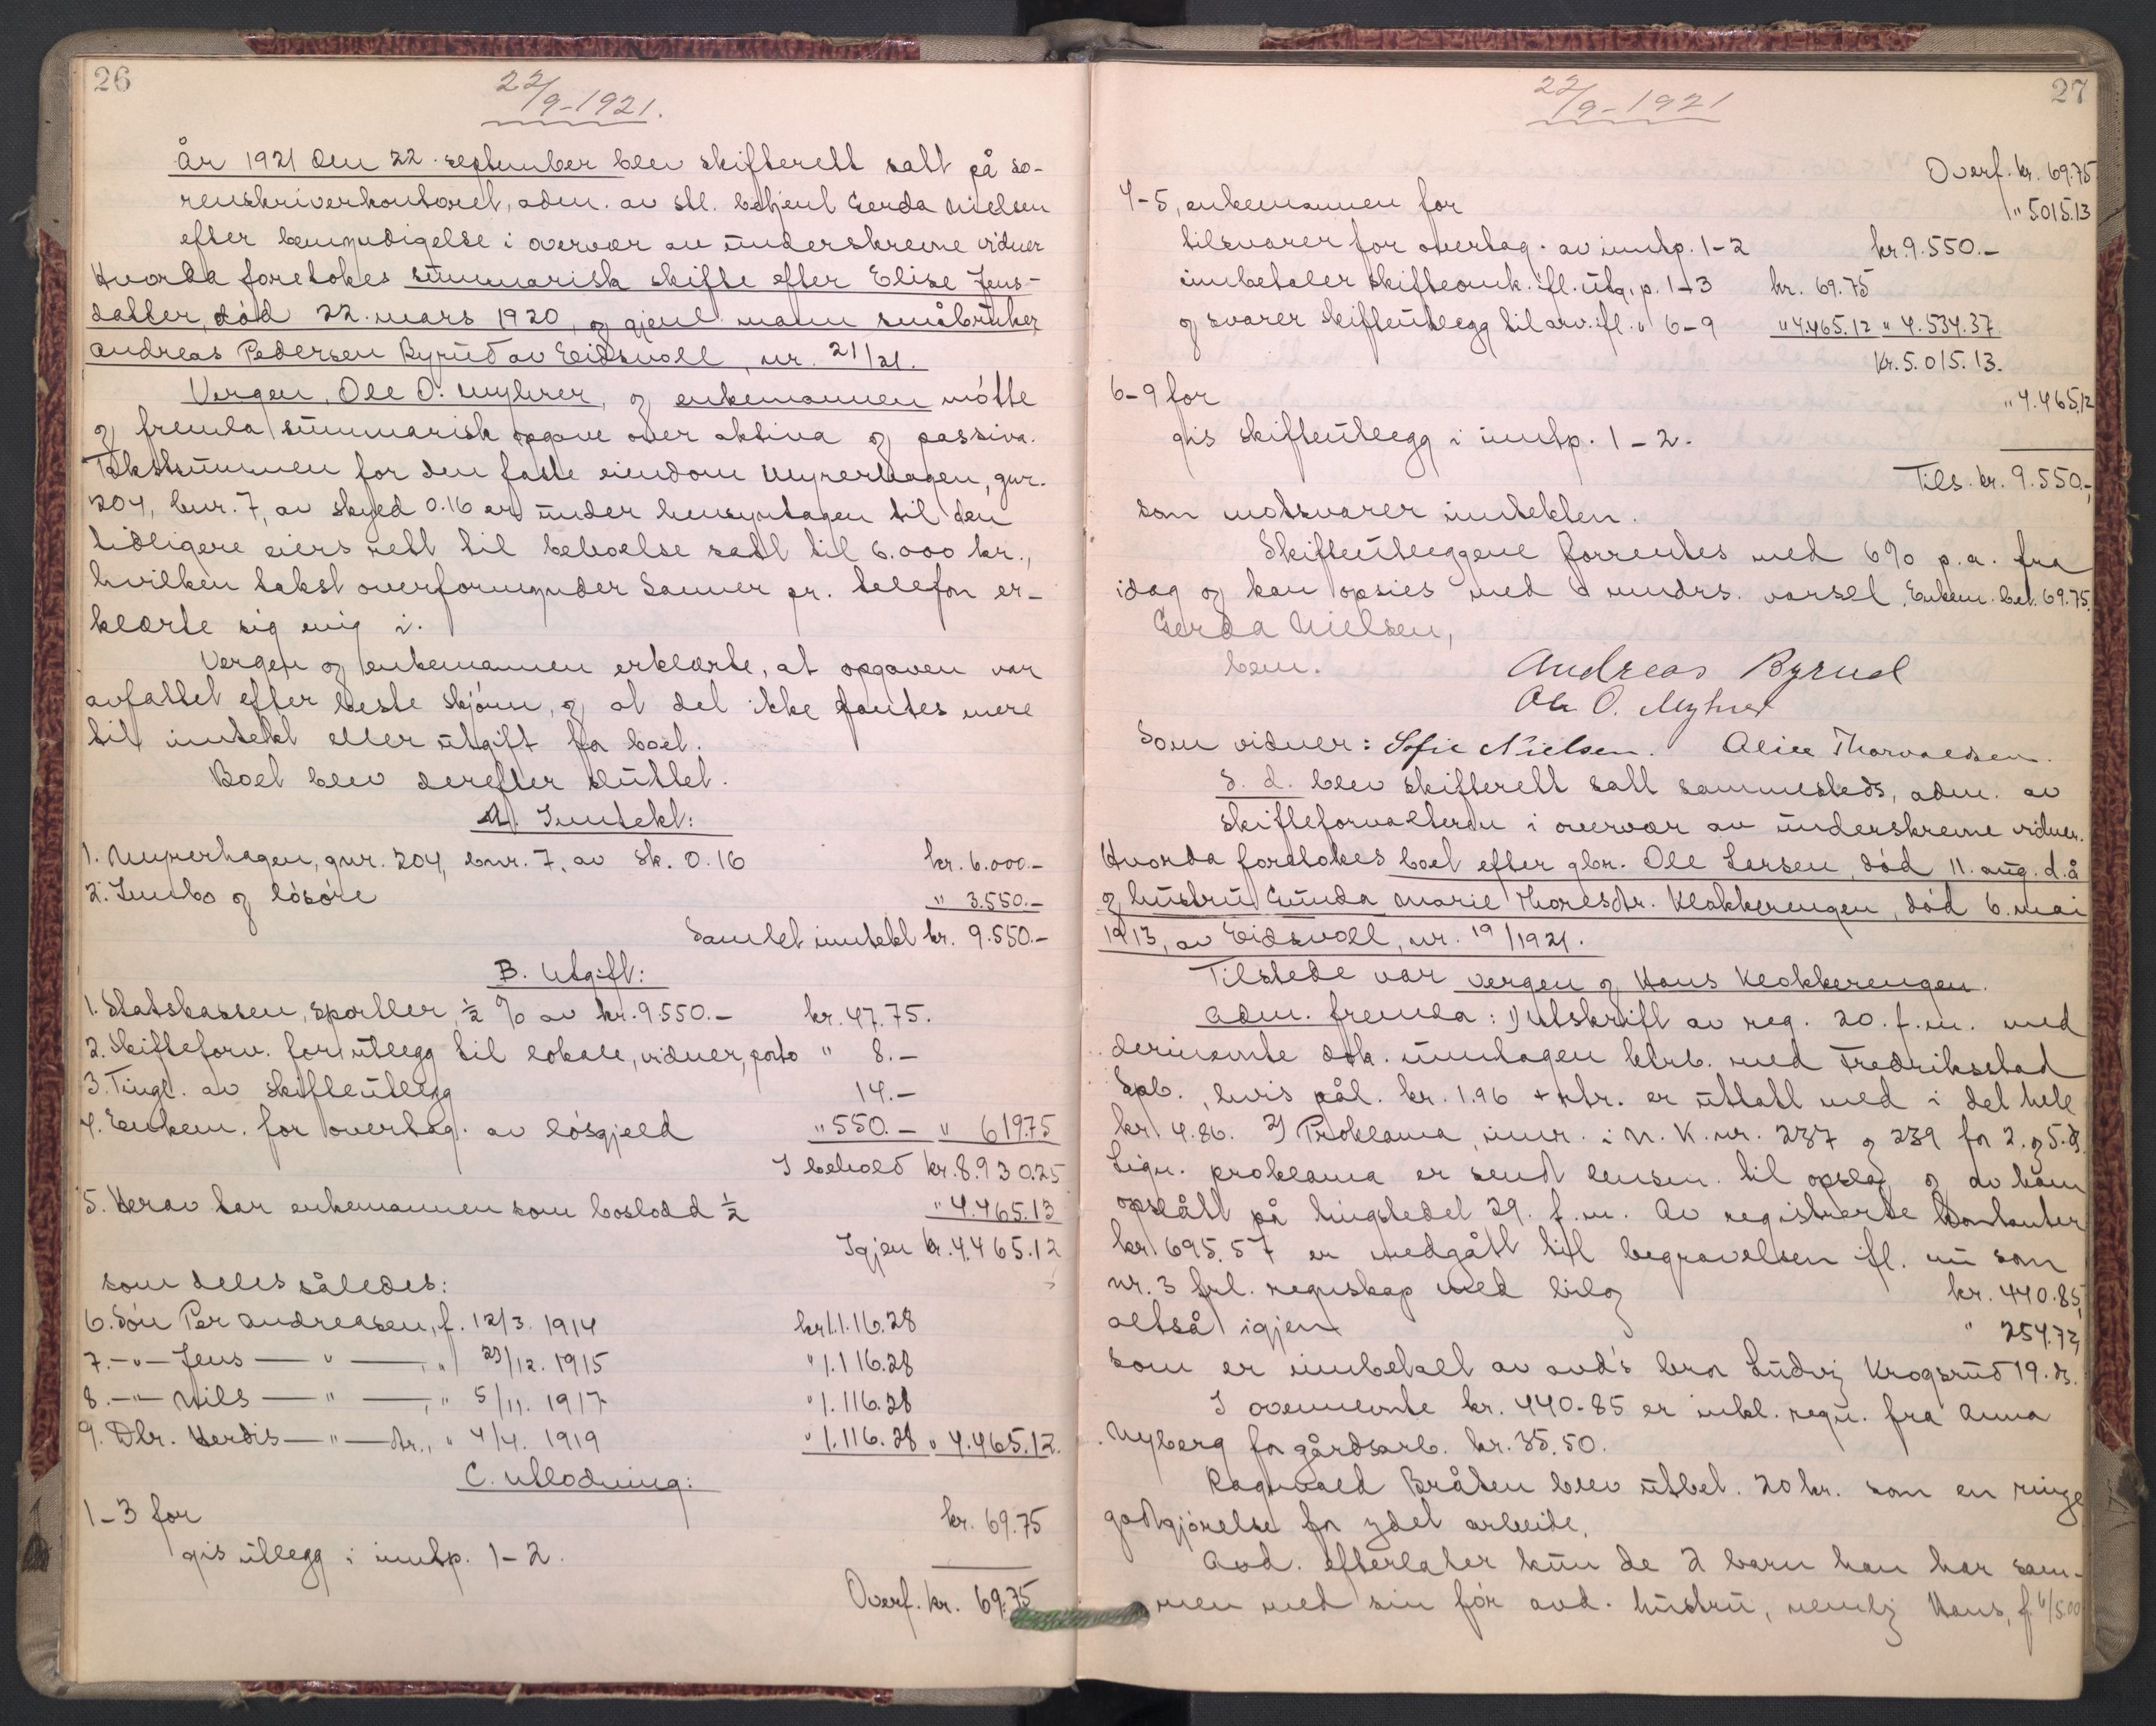 26
22/9-1921.
År 1921 den 22. september blev skifterett satt på so-
renskriverkontoret, adm. av stl. betjent Gerda Nielsen
efter bemyndigelse i overvær av underskrevne vidner
Hvorda foretokes summarisk skifte efter Elise Jens-
datter, død 22. mars 1920, og gjenl. mann småbruker
Andreas Pedersen Byrud av Eidsvoll, nr. 21/21.
Vergen, Ole O. Myhrer, og enkemannen møtte
og fremla summarisk opgave over aktiva og passiva.
Takstsummen for den faste eiendom Myrerhagen, gnr.
204, bnr. 7, av skyld 0.16 er under hensyntagen til den
tidligere eiers rett til beboelse satt til 6.000 kr.,
hvilken takst overformynder Sanner pr. telefon er-
klærte sig enig i.
Vergen og enkemannen erklærte, at opgaven var
avfattet efter beste skjønn, og at det ikke fantes mere
til inntekt eller utgift for boet.
Boet blev derefter sluttet.
A. Inntekt:
1. Myrerhagen, gnr. 204, bnr. 7, av sk. 0.16 kr. 6.000.-
2. Innbo og løsøre " 3.550.-
Samlet inntekt kr. 9.550.-
B. Utgift:
1. Statskassen, sportler, ½ % av kr. 9.550.- kr. 47.75.
2. Skifteforv. for utlegg til lokale, vidner, porto " 8.-
3. Tingl. av skifteutlegg 14.-
4. Enkem. for overtag. av løsgjeld " 550.- " 619.75
I behold kr. 8.930.25
5. Herav tar enkemannen som boslodd ½ " 4.465.13
Igjen kr. 4.465.12
som deles således:
6. Søn Per Andreasen, f. 12/3. 1914 kr. 1.116.28
7. -"- Jens -"-, " 23/12. 1915 " 1.116.28
8. -"- Nils -"-, " 5/11. 1917 " 1.116.28
9. Dtr. Herdis -"- dtr., " 4/4. 1919 " 1.116.28 " 4.465.12.
C. Utlodning:
1-3 for kr. 69.75
gis utlegg i inntp. 1-2.
Overf. kr. 69.75
27
22/9-1921
Overf. kr. 69.75
4-5, enkemannen for " 5015.13
tilsvarer for overtag. av inntp. 1-2 kr. 9.550.-
innbetaler skifteomk. ifl. utg. p. 1-3 kr. 69.75
og svarer skifteutlegg til arv. ifl. " 6-9 " 4.465.12 " 4.534.37.
Kr. 5.015.13.
6-9 for " 4.465.12
gis skifteutlegg i inntp. 1-2.
Tils. kr. 9.550.-,
som motsvarer inntekten.
Skifteutleggene forrentes med 6% p.a. fra
idag og kan opsies med mndrs. varsel. Enkem. bet. 69.75.
Gerda Nielsen,
bem.
Andreas Byrud
Ole O. Myhrer
Som vidner: Sofie Nielsen. Alice Thorvaldsen.
S. d. blev skifterett satt sammesteds, adm. av
skifteforvalteren i overvær av underskrevne vidner.
Hvorda foretokes boet efter gbr. Ole Larsen, død 11. aug. d.å
og hustru Gunda Marie Thoresdtr. Klokkerengen, død 6. mai
1913, av Eidsvoll, nr. 19/1921.
Tilstede var vergen og Hans Klokkerengen.
Adm. fremla: 1) Utskrift av reg. 20. f.m. med
derinevnte dok. unntagen ktrb. med Fredrikstad
Spb., hvis pål. kr. 1.96 + rtr. er uttatt med i det hele
kr. 4.86. 2) Proklama, innr. i N. K. nr. 237 og 239 for 2. og 5. ds.
Lign. proklama er sendt lensm. til opslag og av ham
opslått på tingstedet 29. f.m. Av registrerte kontanter
kr. 695.57 er medgått til begravelsen ifl. nu som
nr. 3 frl. regnskap med bilag kr. 440.85,
altså igjen " 254.72,
som er innbetalt av avd's bror Ludvig Krogsrud 19. ds.
I ovennevnte kr. 440.85 er inkl. regn. fra Anna
Nyberg for gårdsarb. kr. 35.50.
Ragnvald Bråten blev utbet. 20 kr. som en ringe
godtgjørelse for ydet arbeide.
Avd. efterlater kun de 2 barn han har sam-
men med sin før avd. hustru, nemlig Hans, f. 6/5.00